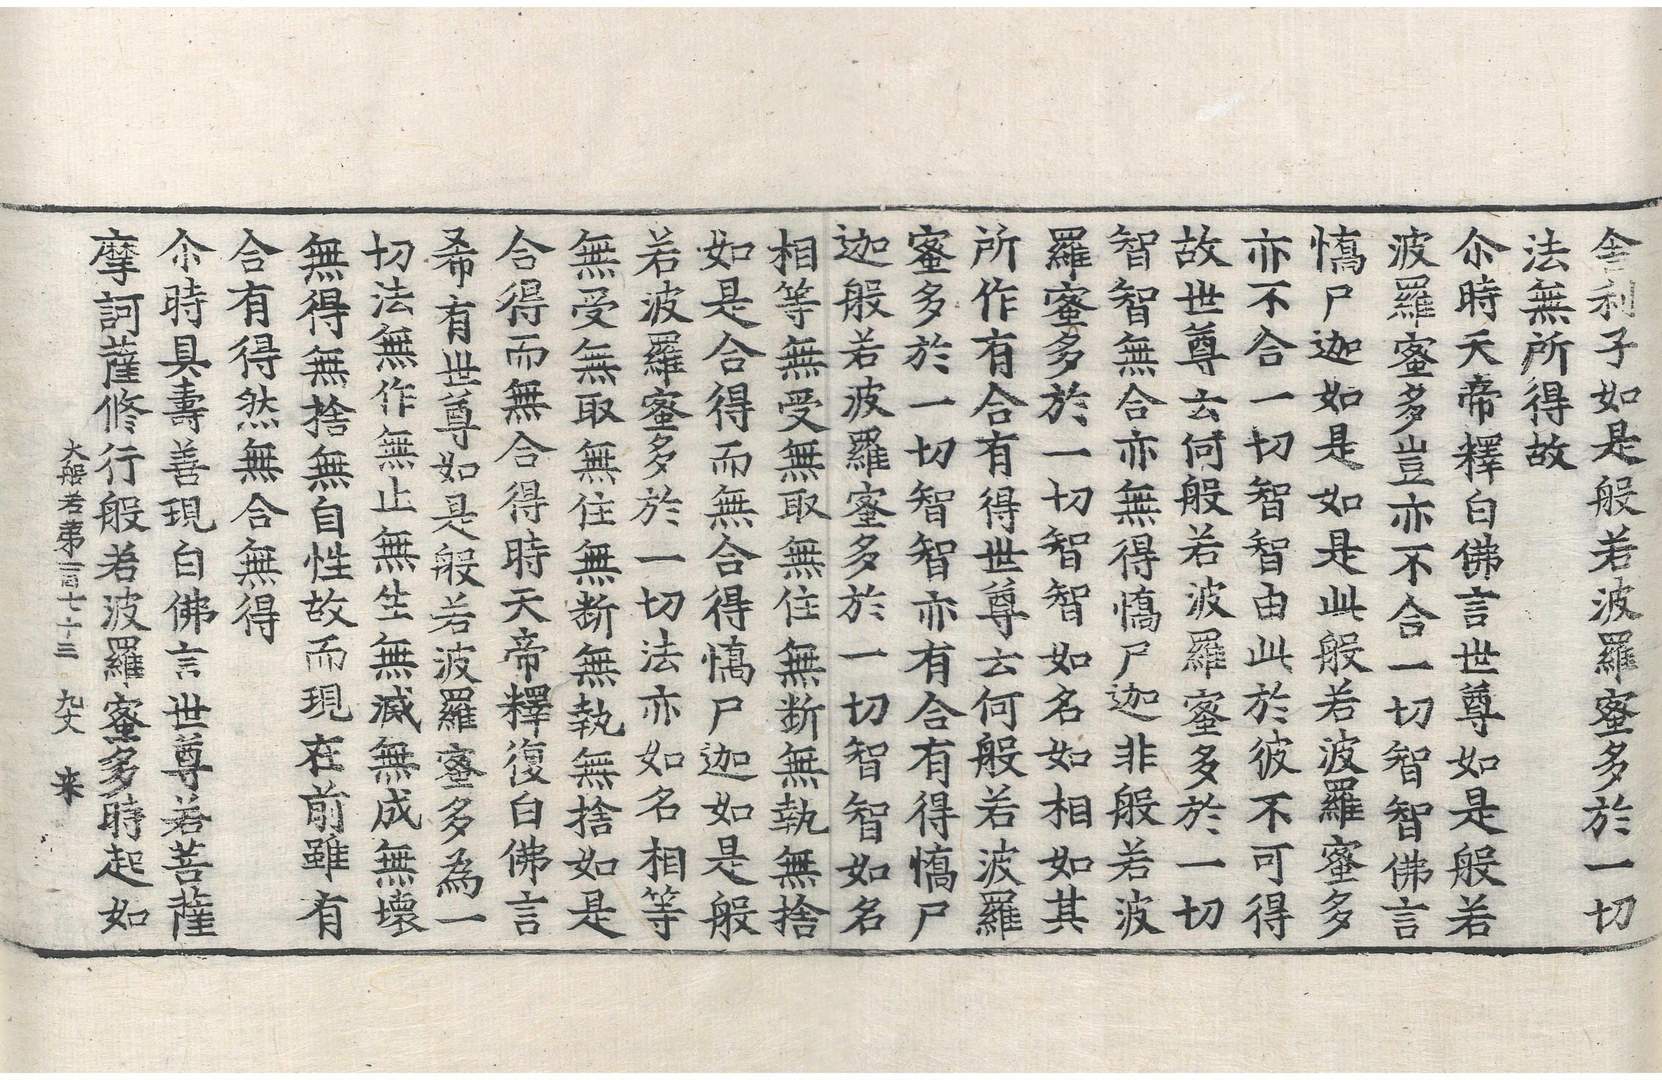 舍利子如是般若波羅蜜多於一切
法無所得故
尒時天帝釋白佛言世尊如是般若
波羅蜜多豈亦不合一切智智佛言
憍尸迦如是如是此般若波羅蜜多
亦不合一切智智由此於彼不可得
故世尊云何般若波羅蜜多於一切
智智無合亦無得憍尸迦非般若波
羅蜜多於一切智智如名如相如其
所作有合有得世尊云何般若波羅
蜜多於一切智智亦有合有得憍尸
迦般若波羅蜜多於一切智智如名
相等無受無取無住無断無執無捨
如是合得而無合得憍尸迦如是般
若波羅蜜多於一切法亦如名相等
無受無取無住無断無執無捨如是
合得而無合得時天帝釋復白佛言
希有世尊如是般若波羅蜜多為一
切法無作無止無生無滅無成無壞
無得無捨無自性故而現在前雖有
合有得然無合無得
尒時具壽善現白佛言世尊若菩薩
摩訶薩修行般若波羅蜜多時起如
大般若第一百七十三 九丈 来